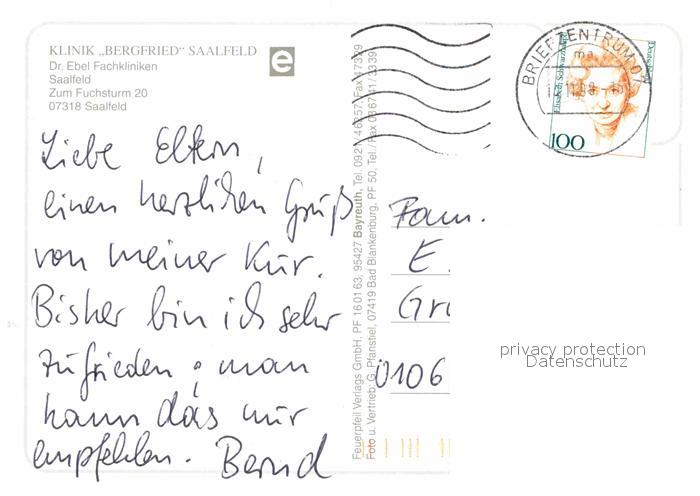 KLINIK „BERGFRIED" SAALFELD
Dr. Ebel Fachkliniken
Saalfeld
Zum Fuchsturm 20
07318 Saalfeld
e
Liebe Eltern,
einen herzlichen Gruß
von meiner Kur.
Bisher bin ich sehr
zufrieden, man
kann das nur
empfehlen. Bernd
Feuerpfeil Verlags GmbH, PF 16 01 63, 95427 Bayreuth, Tel. 0921 / 46257, Fax 47329
Foto u. Vertrieb: G. Pfanstiel, 07419 Bad Blankenburg, PF 50, Tel. / Fax 036741/3339
BRIEFZENTRUM 07
ma
Deutschland
Elisabeth Schwarzhaupt
100
Fam.
E.
Gr
0106
privacy protection
Datenschutz